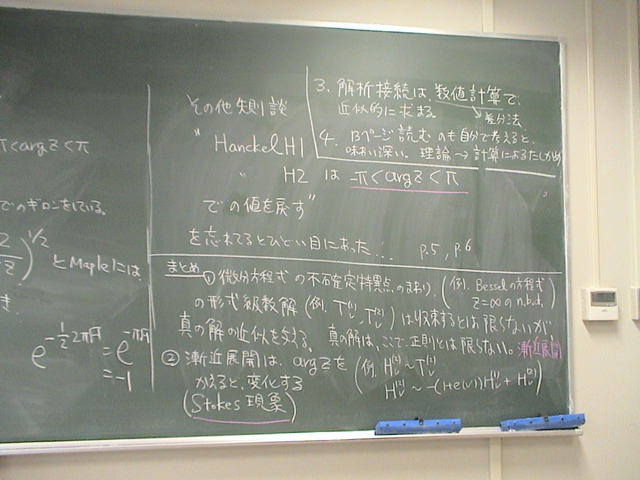 π<argz<π
でのギロンをしている。
)^{1/2} とMapleには
e^{-\frac{1}{2}2πi}=e^{-πi}
=-1
その他失敗談
" HanckelH1
" H2 は -π<argz<π
での値を戻す"
を忘れてるとひどい目にあった... p.5, p.6
3. 解析接続は、数値計算で、
近似的に求まる。
差分法
4. 13ページ読むのも自分で考えると、
味わい深い. 理論→計算によるたしかめ
まとめ ① 微分方程式の不確定特異点のまわり. (例. Besselの方程式
z=∞のn.b.d.)
の形式級数解 (例. ) は収束するとは限らないが、
真の解の近似を与える. 真の解は、ここで、正則とは限らない。漸近展開
② 漸近展開は、argzを
かえると、変化する
(Stokes 現象)